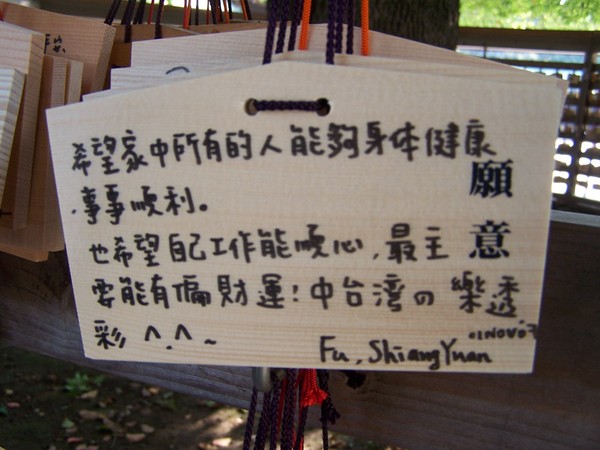 希望家中所有的人能夠身体健康
事事順利。
也希望自己工作能順心,最主
要能有偏財運!中台湾の樂透
彩 ^.^ ~
願意
01NOV07
Fu, ShiangYuan